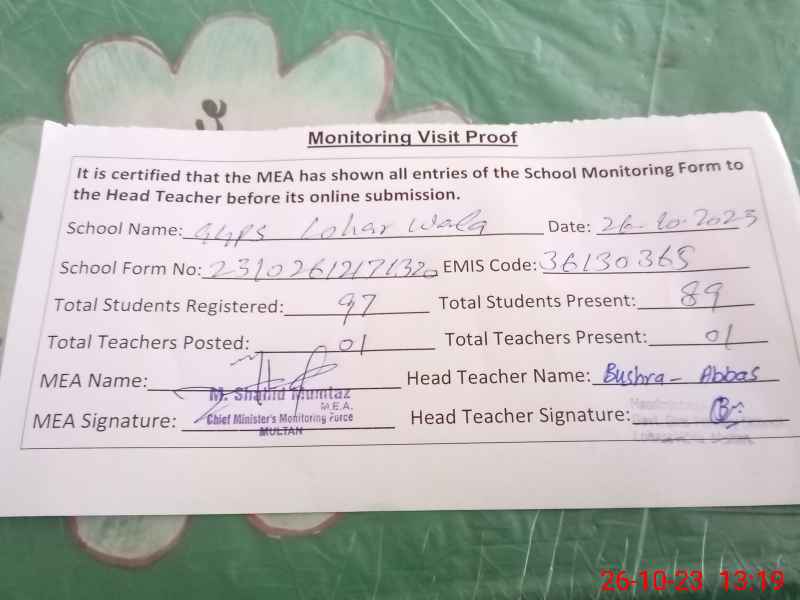 Monitoring Visit Proof
It is certified that the MEA has shown all entries of the School Monitoring Form to
the Head Teacher before its online submission.
School Name: GGPS Lohar Wala Date: 26-10-2023
School Form No: EMIS Code: 36130365
Total Students Registered: 97 Total Students Present: 89
Total Teachers Posted: 01 Total Teachers Present: 01
MEA Name: Head Teacher Name: Bushra - Abbas
M. Shahid Mumtaz
M.E.A.
MEA Signature: Chief Minister's Monitoring Force Head Teacher Signature:
MULTAN
26-10-23 13:19